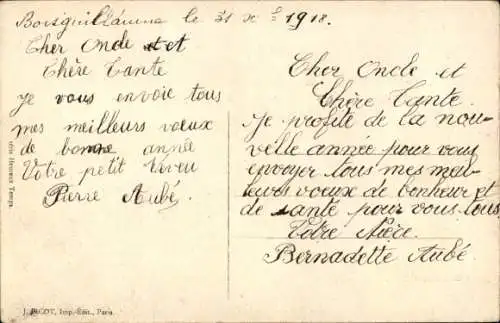 Boisguillaume le 31 Xbre 1918.
Cher Oncle et
Chère Tante
Je vous envoie tous
mes meilleurs vœux
de bonne année
Votre petit Neveu
Pierre Aubé.
Cher Oncle et
Chère Tante.
Je profite de la nou-
velle année pour vous
envoyer tous mes meil-
leurs vœux de bonheur et
de santé pour vous tous
Votre Nièce.
Bernadette Aubé.
J. PICOT, Imp.-Édit., Paris.